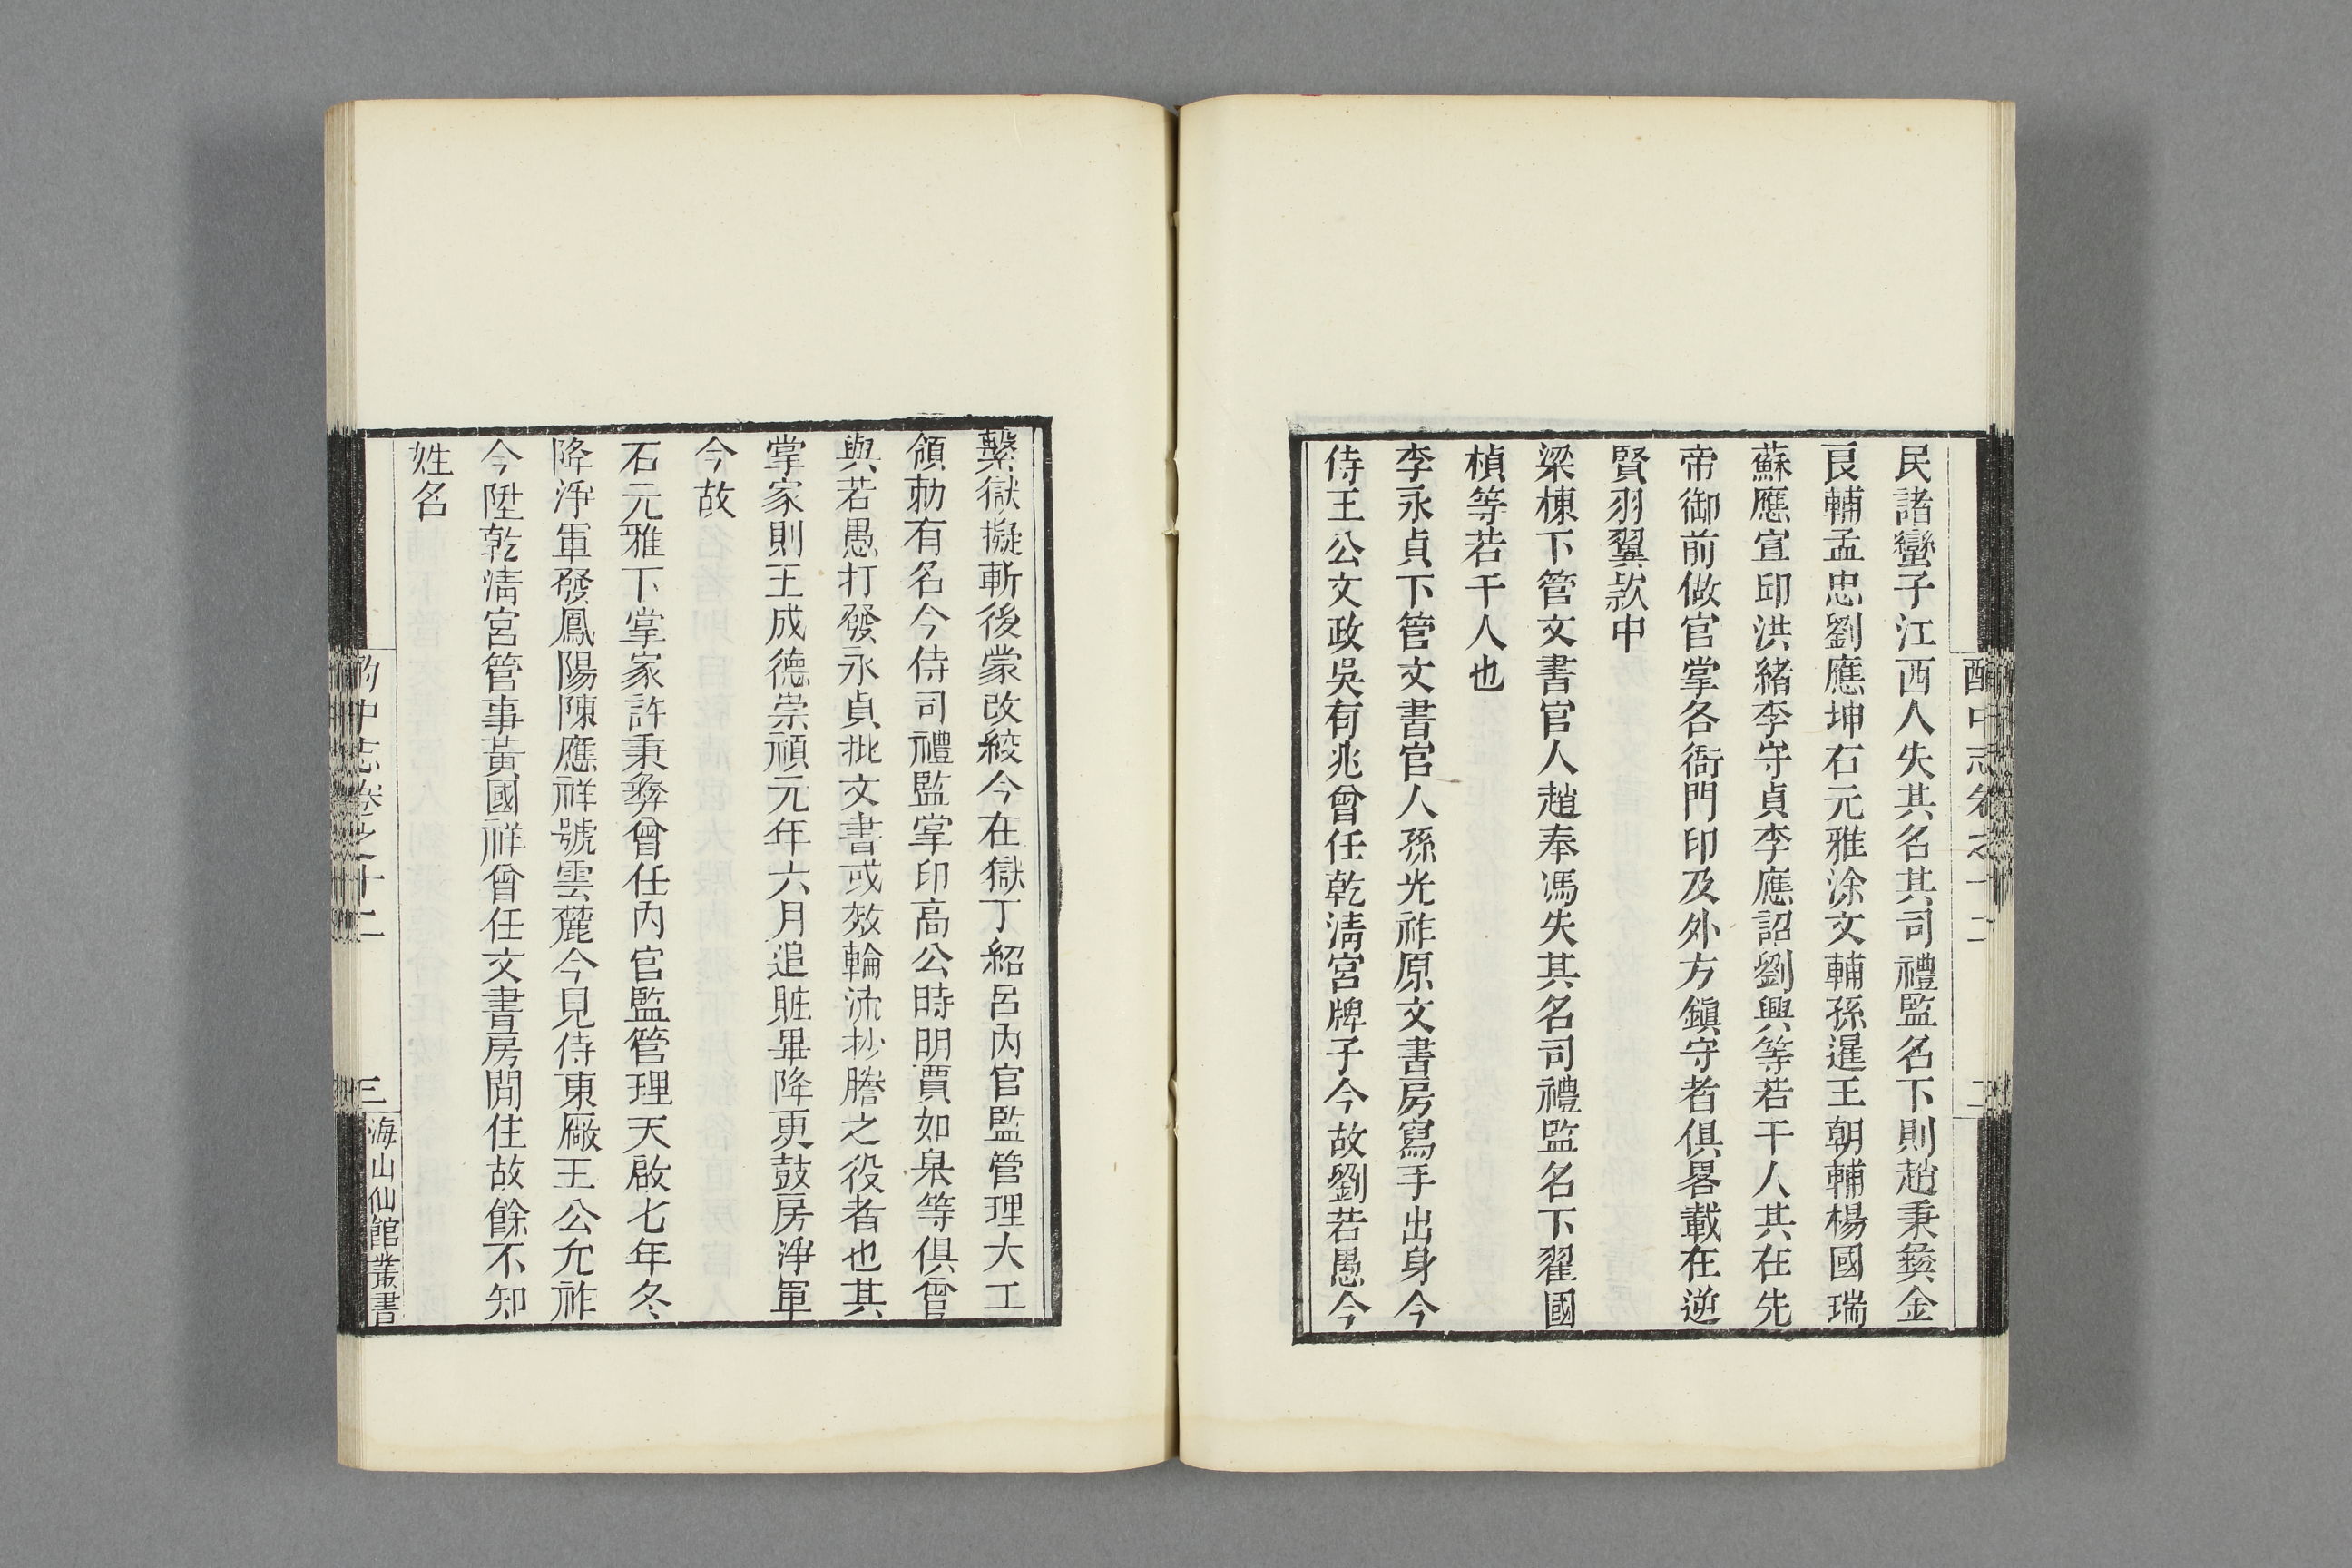 酌中志卷之十二
二
民諸蠻子江西人失其名其司禮監名下則趙秉彝金
良輔孟忠劉應坤石元雅涂文輔孫暹王朝輔楊國瑞
蘇應宣邱洪緒李守貞李應詔劉興等若干人其在先
帝御前做官掌各衙門印及外方鎮守者俱畧載在逆
賢羽翼款中
梁棟下管文書官人趙奉馮失其名司禮監名下翟國
楨等若干人也
李永貞下管文書官人孫光祚原文書房寫手出身今
侍王公文政吳有兆曾任乾清宮牌子今故劉若愚今
繫獄擬斬後蒙改絞今在獄丁紹呂內官監管理大工
領勅有名今侍司禮監掌印高公時明賈如臯等俱曾
與若愚打發永貞批文書或效輪流抄謄之役者也其
掌家則王成德崇禎元年六月追賍畢降更鼓房淨軍
今故
石元雅下掌家許秉彝曾任內官監管理天啟七年冬
降淨軍發鳳陽陳應祥號雲麓今見侍東廠王公允祚
今陞乾清宮管事黃國祥曾任文書房閒住故餘不知
姓名
酌中志卷之十二
三
海山仙館叢書